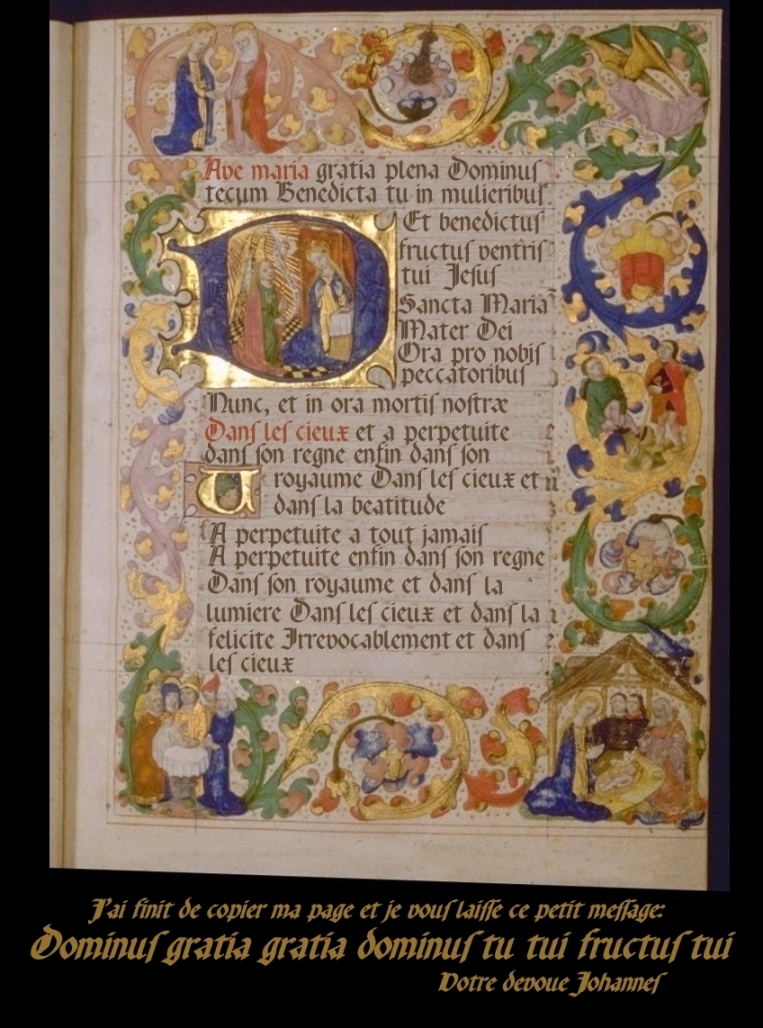 Ave maria gratia plena Dominus
tecum Benedicta tu in mulieribus
Et benedictus
fructus ventris
tui Jesus
Sancta Maria
Mater Dei
Ora pro nobis
peccatoribus
Nunc, et in ora mortis nostræ
Dans les cieux et a perpetuite
dans son regne enfin dans son
royaume Dans les cieux et
dans la beatitude
A perpetuite a tout jamais
A perpetuite enfin dans son regne
Dans son royaume et dans la
lumiere Dans les cieux et dans la
felicite Irrevocablement et dans
les cieux
J'ai finit de copier ma page et je vous laisse ce petit message:
Dominus gratia gratia dominus tu tui fructus tui
Votre devoue Johannes